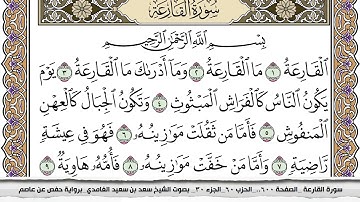 سُورَةُ القَارِعَةِ
بِسْمِ اللَّهِ الرَّحْمَٰنِ الرَّحِيمِ
الْقَارِعَةُ ١ مَا الْقَارِعَةُ ٢ وَمَا أَدْرَىٰكَ مَا الْقَارِعَةُ ٣ يَوْمَ
يَكُونُ النَّاسُ كَالْفَرَاشِ الْمَبْثُوثِ ٤ وَتَكُونُ الْجِبَالُ كَالْعِهْنِ
الْمَنفُوشِ ٥ فَأَمَّا مَن ثَقُلَتْ مَوَٰزِينُهُۥ ٦ فَهُوَ فِي عِيشَةٍ
رَّاضِيَةٍ ٧ وَأَمَّا مَنْ خَفَّتْ مَوَٰزِينُهُۥ ٨ فَأُمُّهُۥ هَاوِيَةٌ ٩
سورة القارعة _الصفحة ٦٠٠_ الحزب ٦٠_الجزء ٣٠_ بصوت الشيخ سعد بن سعيد الغامدي_ برواية حفص عن عاصم